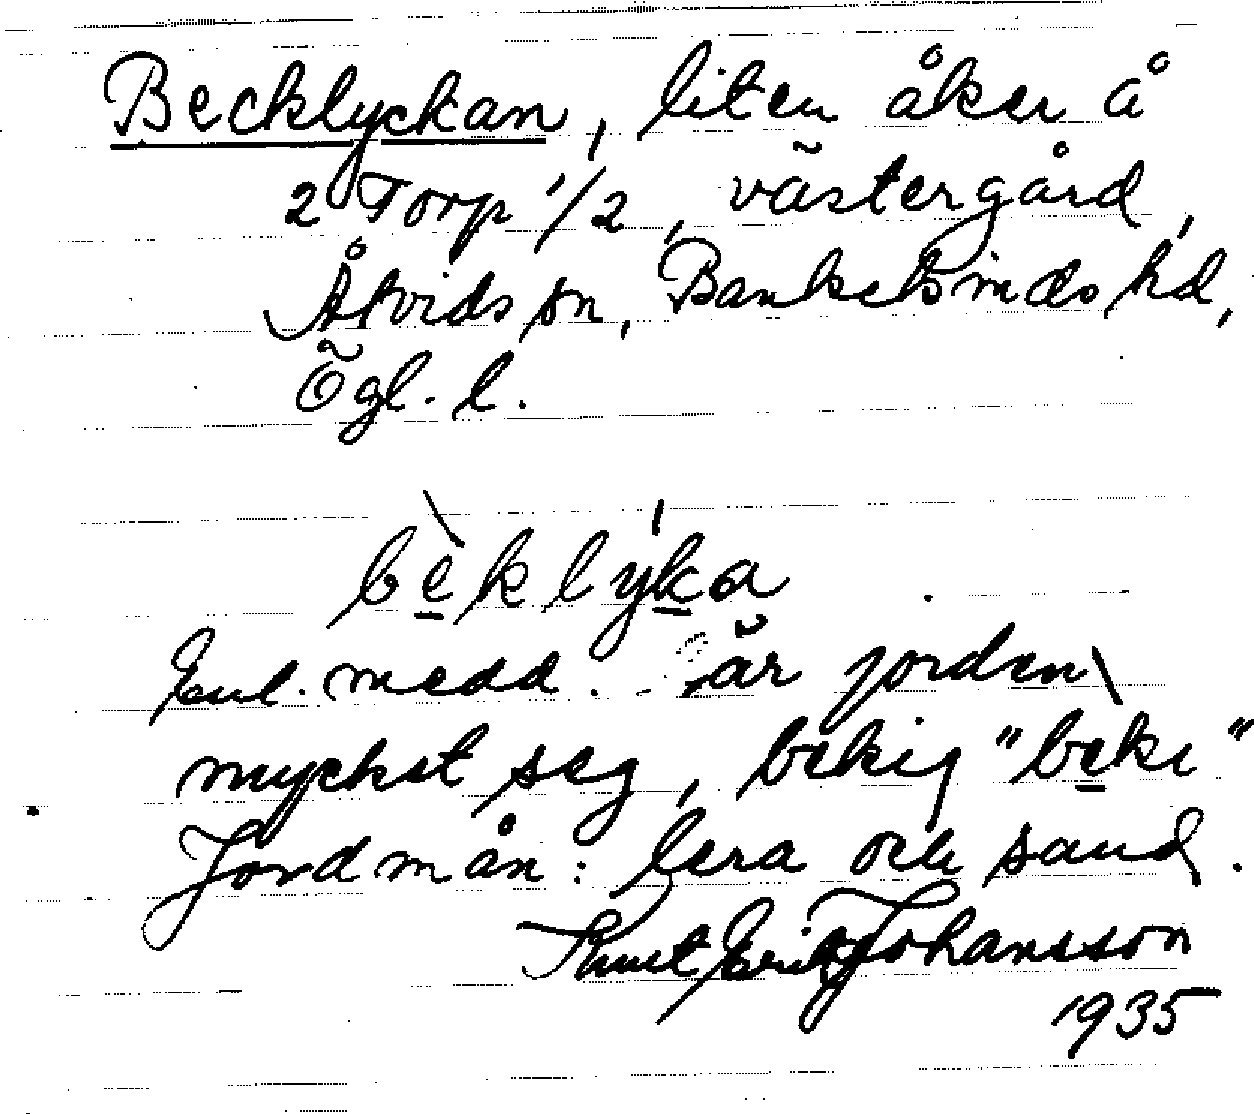 Becklyckan, liten åker å
2 Torp 1/2, västergård,
Åtvids sn, Bankekinds hd,
Ögl. l.
bèklýka
Enl. medd. är jorden
mycket seg, bekig "bèke"
Jordmån: lera och sand.
Knut Erik Johansson
1935